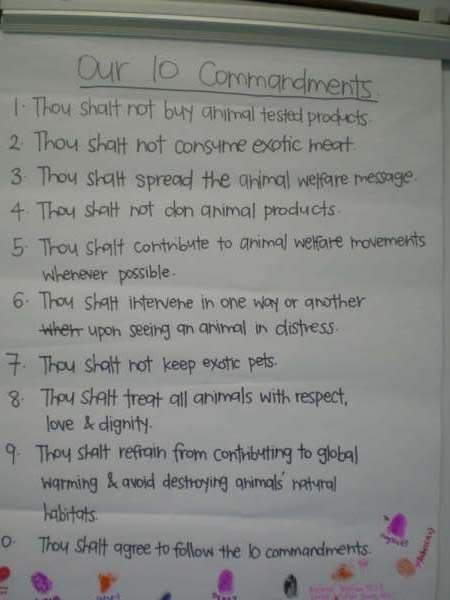 Our 10 Commandments.
1. Thou shalt not buy animal tested products.
2. Thou shalt not consume exotic meat.
3. Thou shalt spread the animal welfare message.
4. Thou shalt not don animal products.
5. Thou shalt contribute to animal welfare movements
whenever possible.
6. Thou shalt intervene in one way or another
when upon seeing an animal in distress.
7. Thou shalt not keep exotic pets.
8. Thou shalt treat all animals with respect,
love & dignity.
9. Thou shalt refrain from contributing to global
warming & avoid destroying animals' natural
habitats.
0. Thou shalt agree to follow the 10 commandments.